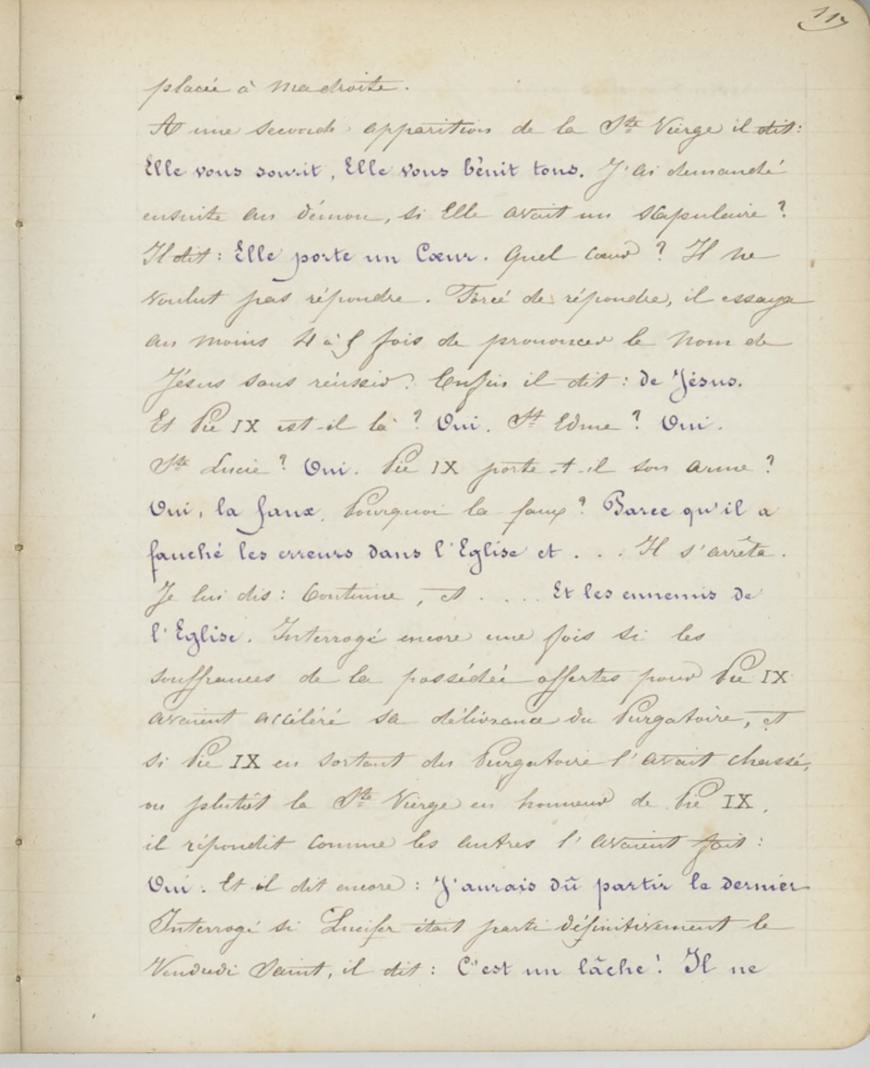 117
placée à ma droite.
A une seconde apparition de la Ste Vierge il dit:
Elle vous sourit, Elle vous bénit tous. J'ai demandé
ensuite au démon, si Elle avait un scapulaire ?
Il dit: Elle porte un Cœur. Quel cœur ? Il ne
voulut pas répondre. Forcé de répondre, il essaya
au moins 4 à 5 fois de prononcer le nom de
Jésus sans réussir. Enfin il dit: de Jésus.
Et Pie IX est-il là ? Oui. St Edme ? Oui.
Ste Lucie ? Oui. Pie IX porte-t-il son arme ?
Oui, la faux. Pourquoi la faux ? Parce qu'il a
fauché les erreurs dans l'Eglise et . . . Il s'arrêta.
Je lui dis: Continue, et . . . . Et les ennemis de
l'Eglise. Interrogé encore une fois si les
souffrances de la possédée offertes pour Pie IX
avaient accéléré sa délivrance du Purgatoire, et
si Pie IX en sortant du Purgatoire l'avait chassé,
ou plutôt la Ste Vierge en honneur de Pie IX,
il répondit comme les autres l'avaient fait:
Oui. Et il dit encore: J'aurais dû partir le dernier
Interrogé si Lucifer était parti définitivement le
Vendredi Saint, il dit: C'est un lâche! Il ne